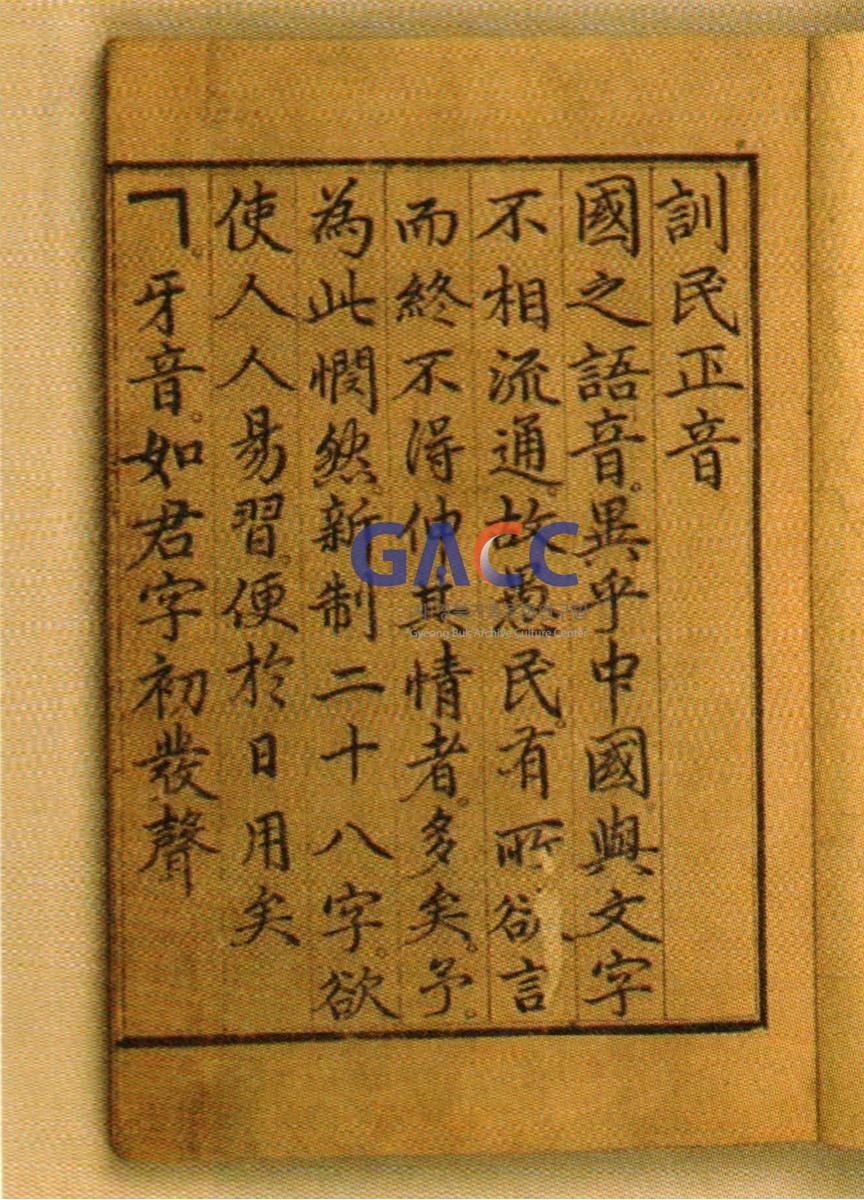 訓民正音
國之語音。異乎中國與文字
不相流通。故愚民。有所欲言
而終不得伸其情者。多矣。予。
為此憫然。新制二十八字。欲
使人人易習。便於日用矣
ㄱ。牙音。如君字初發聲
GACC
Gyeong Buk Archive Culture Center